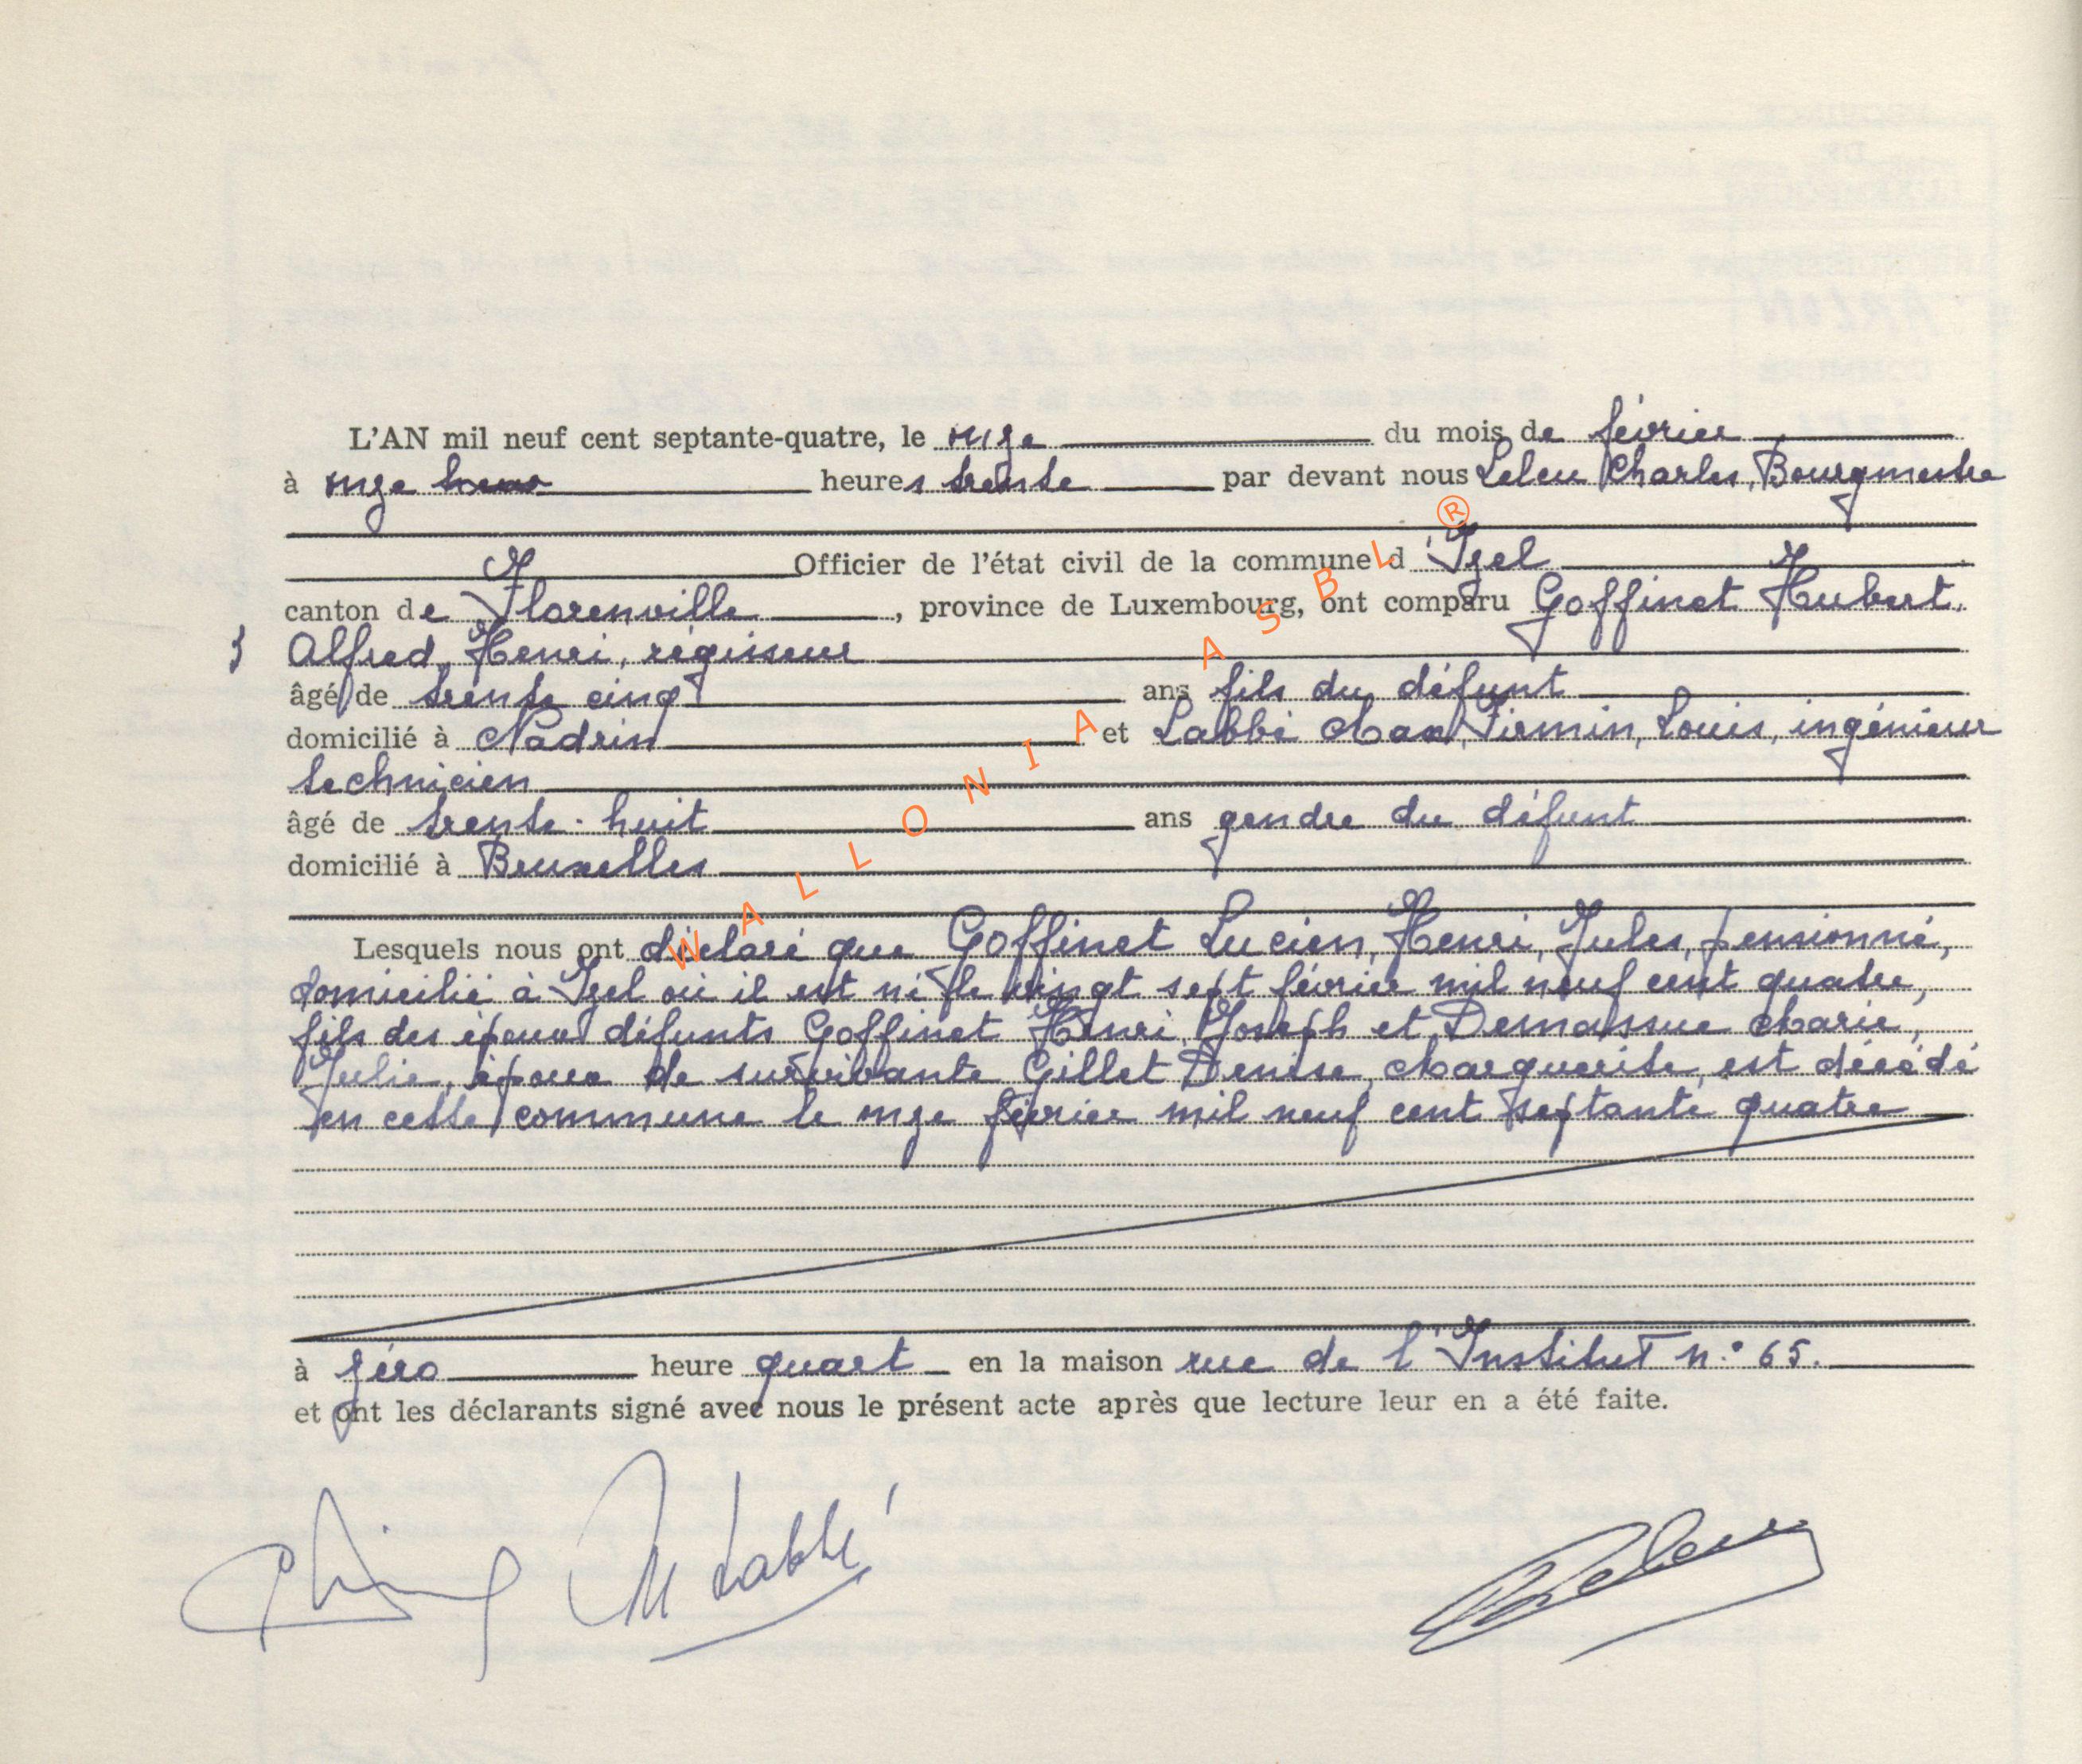 L'AN mil neuf cent septante-quatre, le onze du mois de février
à onze heures heures trente par devant nous Leleu Charles, Bourgmestre
Officier de l'état civil de la commune d'Izel
canton de Florenville, province de Luxembourg, ont comparu Goffinet Hubert,
Alfred, Henri, régisseur
âgé de trente cinq ans fils du défunt
domicilié à Nadrin et Labbé Max, Firmin, Louis, ingénieur
technicien
âgé de trente-huit ans gendre du défunt
domicilié à Bruxelles
Lesquels nous ont déclaré que Goffinet Lucien, Henri, Jules, pensionné,
domicilié à Izel où il est né le vingt sept février mil neuf cent quatre,
fils des époux défunts Goffinet Henri, Joseph et Demassue Marie,
Julie, époux de survivante Gillet Denise, Marguerite, est décédé
en cette commune le onze février mil neuf cent septante quatre
à zéro heure quart en la maison rue de l'Institut n.° 65.
et ont les déclarants signé avec nous le présent acte après que lecture leur en a été faite.
M Labbé
Leleu
WALLONIA ASBL ®